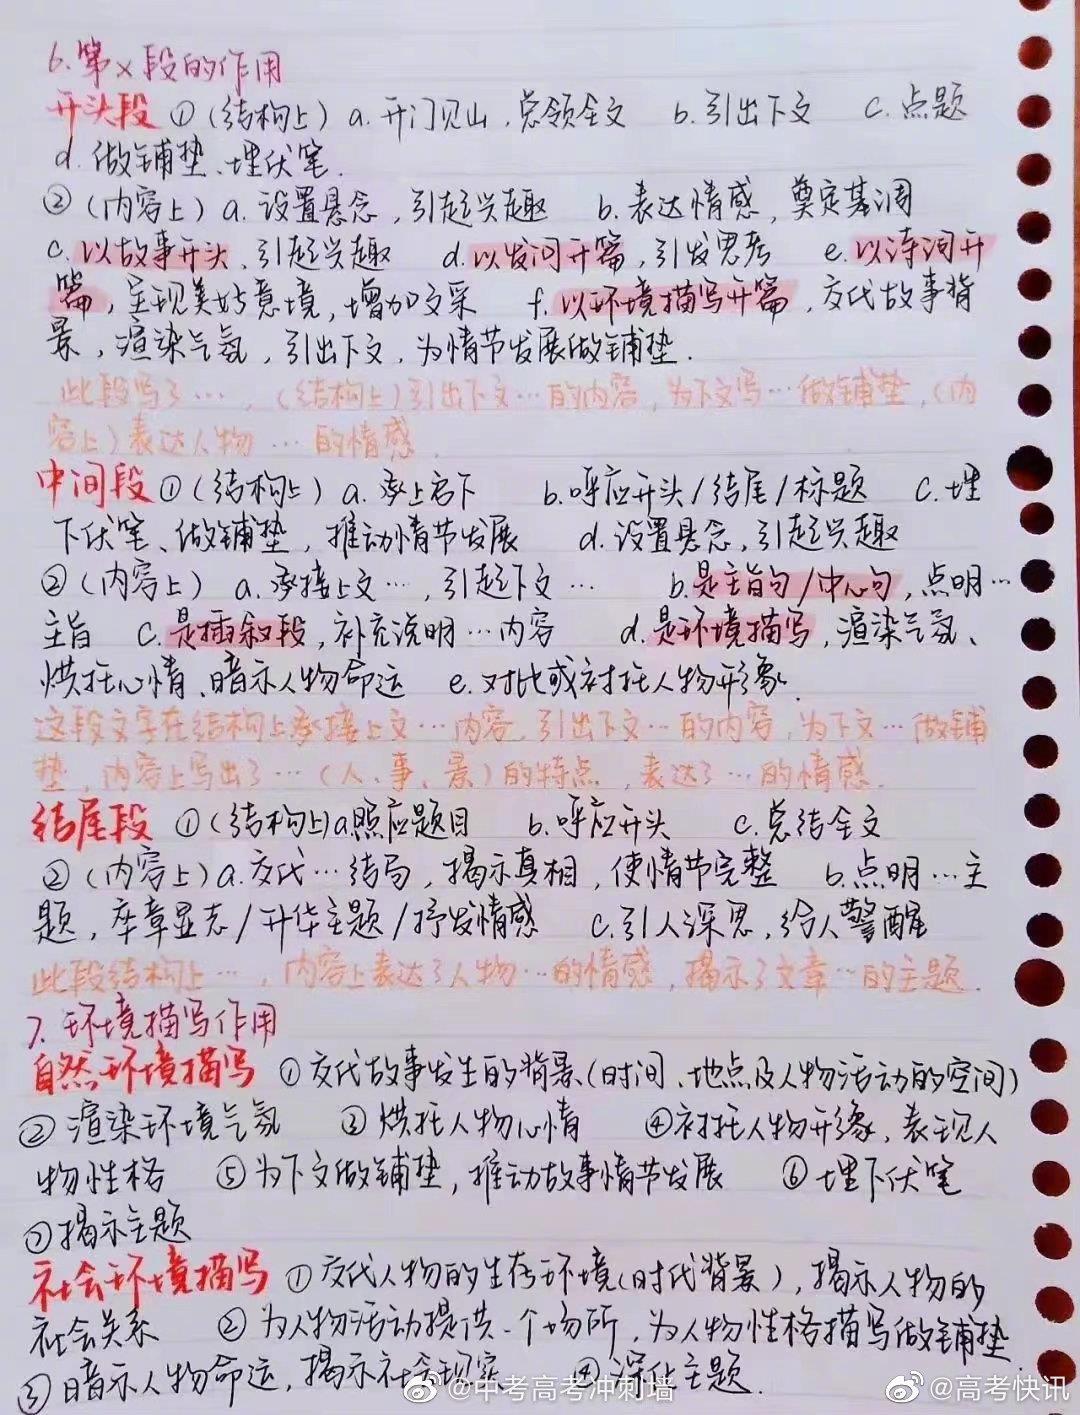 6.第x段的作用
开头段 ①(结构上) a.开门见山,总领全文 b.引出下文 c.点题
d.做铺垫、埋伏笔.
②(内容上) a.设置悬念,引起兴趣 b.表达情感,奠定基调
c.以故事开头,引起兴趣 d.以发问开篇,引发思考 e.以诗词开
篇,呈现美好意境,增加文采 f.以环境描写开篇,交代故事背
景,渲染气氛,引出下文,为情节发展做铺垫.
此段写了…,(结构上)引出下文…的内容,为下文写…做铺垫,(内
容上)表达人物…的情感.
中间段 ①(结构上) a.承上启下 b.呼应开头/结尾/标题 c.埋
下伏笔、做铺垫,推动情节发展 d.设置悬念,引起兴趣
②(内容上) a.承接上文…,引起下文… b.是主旨句/中心句,点明…
主旨 c.是插叙段,补充说明…内容 d.是环境描写,渲染气氛、
烘托心情、暗示人物命运 e.对比或衬托人物形象.
这段文字在结构上承接上文…内容,引出下文…的内容,为下文…做铺
垫,内容上写出了…(人、事、景)的特点,表达了…的情感.
结尾段 ①(结构上)a.照应题目 b.呼应开头 c.总结全文
②(内容上)a.交代…结局,揭示真相,使情节完整 b.点明…主
题,卒章显志/升华主题/抒发情感 c.引人深思,给人警醒
此段结构上…,内容上表达了人物…的情感,揭示了文章…的主题.
7.环境描写作用
自然环境描写 ①交代故事发生的背景(时间、地点及人物活动的空间)
②渲染环境气氛 ③烘托人物心情 ④衬托人物形象,表现人
物性格 ⑤为下文做铺垫,推动故事情节发展 ⑥埋下伏笔
⑦揭示主题
社会环境描写 ①交代人物的生存环境(时代背景),揭示人物的
社会关系 ②为人物活动提供一个场所,为人物性格描写做铺垫.
③暗示人物命运,揭示社会现实 ④深化主题.
@中考高考冲刺墙 @高考快讯